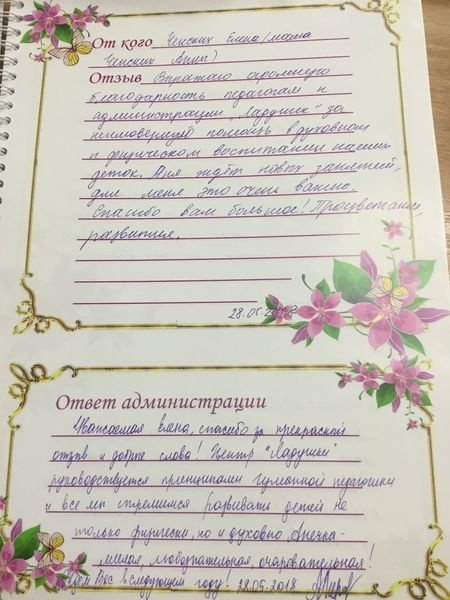 От кого Ченских Елена (мама
Ченских Анны)
Отзыв Выражаю огромную
благодарность педагогам и
администрации "Ладушек" за
неимоверную помощь в духовном
и физическом воспитании наших
деток. Аня ждёт новых занятий,
для меня это очень важно.
Спасибо вам большое! Процветания,
развития.
28.05.2018
Ответ администрации
Уважаемая Елена, спасибо за прекрасный
отзыв и добрые слова! Центр "Ладушки"
руководствуется принципами Гуманной педагогики
и все мы стремимся развивать детей не
только физически, но и духовно. Анечка-
милая, любознательная, очаровательная!
Ждем Вас в следующем году! 28.05.2018